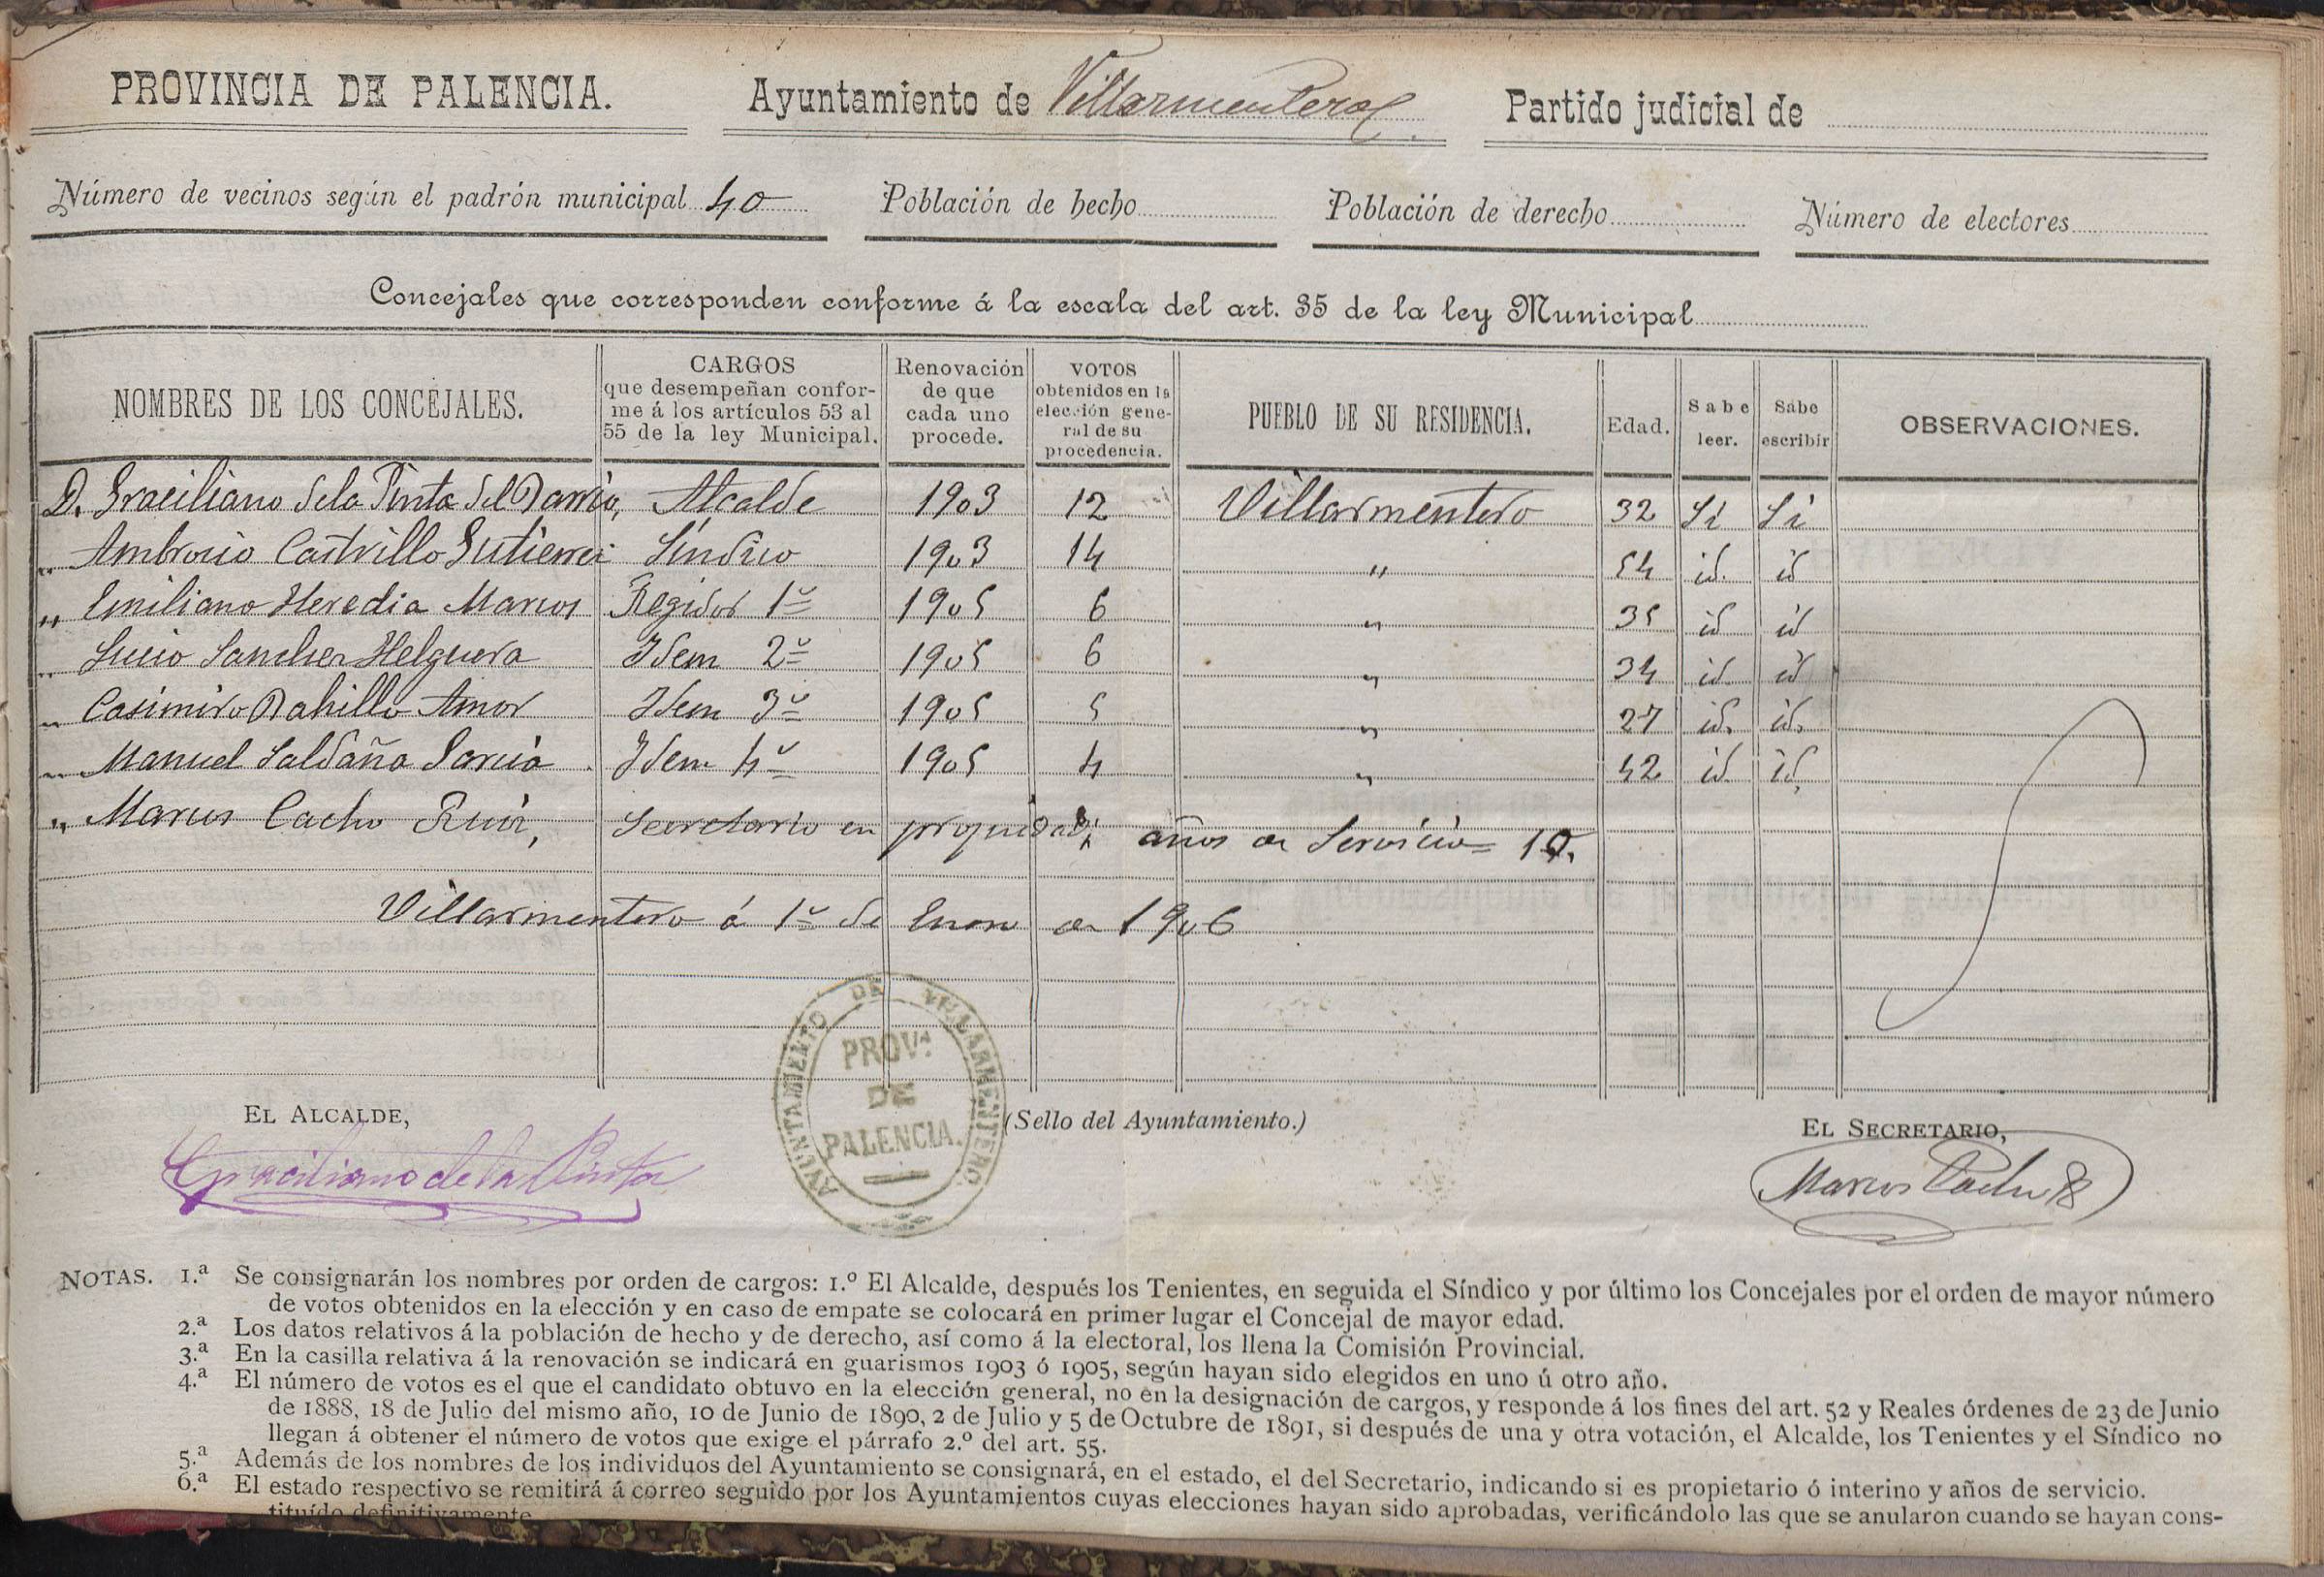 PROVINCIA DE PALENCIA. Ayuntamiento de Villarmentero Partido judicial de
Número de vecinos según el padrón municipal 40 Población de hecho Población de derecho Número de electores
Concejales que corresponden conforme á la escala del art. 35 de la ley Municipal
NOMBRES DE LOS CONCEJALES.
CARGOS
que desempeñan confor-
me á los artículos 53 al
55 de la ley Municipal.
Renovación
de que
cada uno
procede.
VOTOS
obtenidos en la
elección gene-
ral de su
procedencia.
PUEBLO DE SU RESIDENCIA.
Edad.
Sabe
leer.
Sabe
escribir
OBSERVACIONES.
D. Graciliano de la Pinta del Barrio, Alcalde 1903 12 Villarmentero 32 Si Si
" Ambrosio Castrillo Gutierrez Síndico 1903 14 " 54 id. id
" Emiliano Heredia Marcos Regidor 1º 1905 6 " 35 id id
" Lucio Sanchez Helguera Idem 2º 1905 6 " 34 id id
" Casimiro Rahillo Amor Idem 3º 1905 5 " 27 id. id.
" Manuel Saldaña Garcia Idem 4º 1905 4 " 42 id. id.
" Marcos Cacho Ruiz, Secretario en propiedad; años de Servicio = 10.
Villarmentero á 1º de Enero de 1906
EL ALCALDE,
(Sello del Ayuntamiento.)
EL SECRETARIO,
AYUNTAMIENTO DE VILLARMENTERO
PROVª
DE
PALENCIA.
Graciliano de la Pinta
Marcos Cacho R
NOTAS. 1.ª Se consignarán los nombres por orden de cargos: 1.º El Alcalde, después los Tenientes, en seguida el Síndico y por último los Concejales por el orden de mayor número
de votos obtenidos en la elección y en caso de empate se colocará en primer lugar el Concejal de mayor edad.
2.ª Los datos relativos á la población de hecho y de derecho, así como á la electoral, los llena la Comisión Provincial.
3.ª En la casilla relativa á la renovación se indicará en guarismos 1903 ó 1905, según hayan sido elegidos en uno ú otro año.
4.ª El número de votos es el que el candidato obtuvo en la elección general, no en la designación de cargos, y responde á los fines del art. 52 y Reales órdenes de 23 de Junio
de 1888, 18 de Julio del mismo año, 10 de Junio de 1890, 2 de Julio y 5 de Octubre de 1891, si después de una y otra votación, el Alcalde, los Tenientes y el Síndico no
llegan á obtener el número de votos que exige el párrafo 2.º del art. 55.
5.ª Además de los nombres de los individuos del Ayuntamiento se consignará, en el estado, el del Secretario, indicando si es propietario ó interino y años de servicio.
6.ª El estado respectivo se remitirá á correo seguido por los Ayuntamientos cuyas elecciones hayan sido aprobadas, verificándolo las que se anularon cuando se hayan cons-
tituído definitivamente